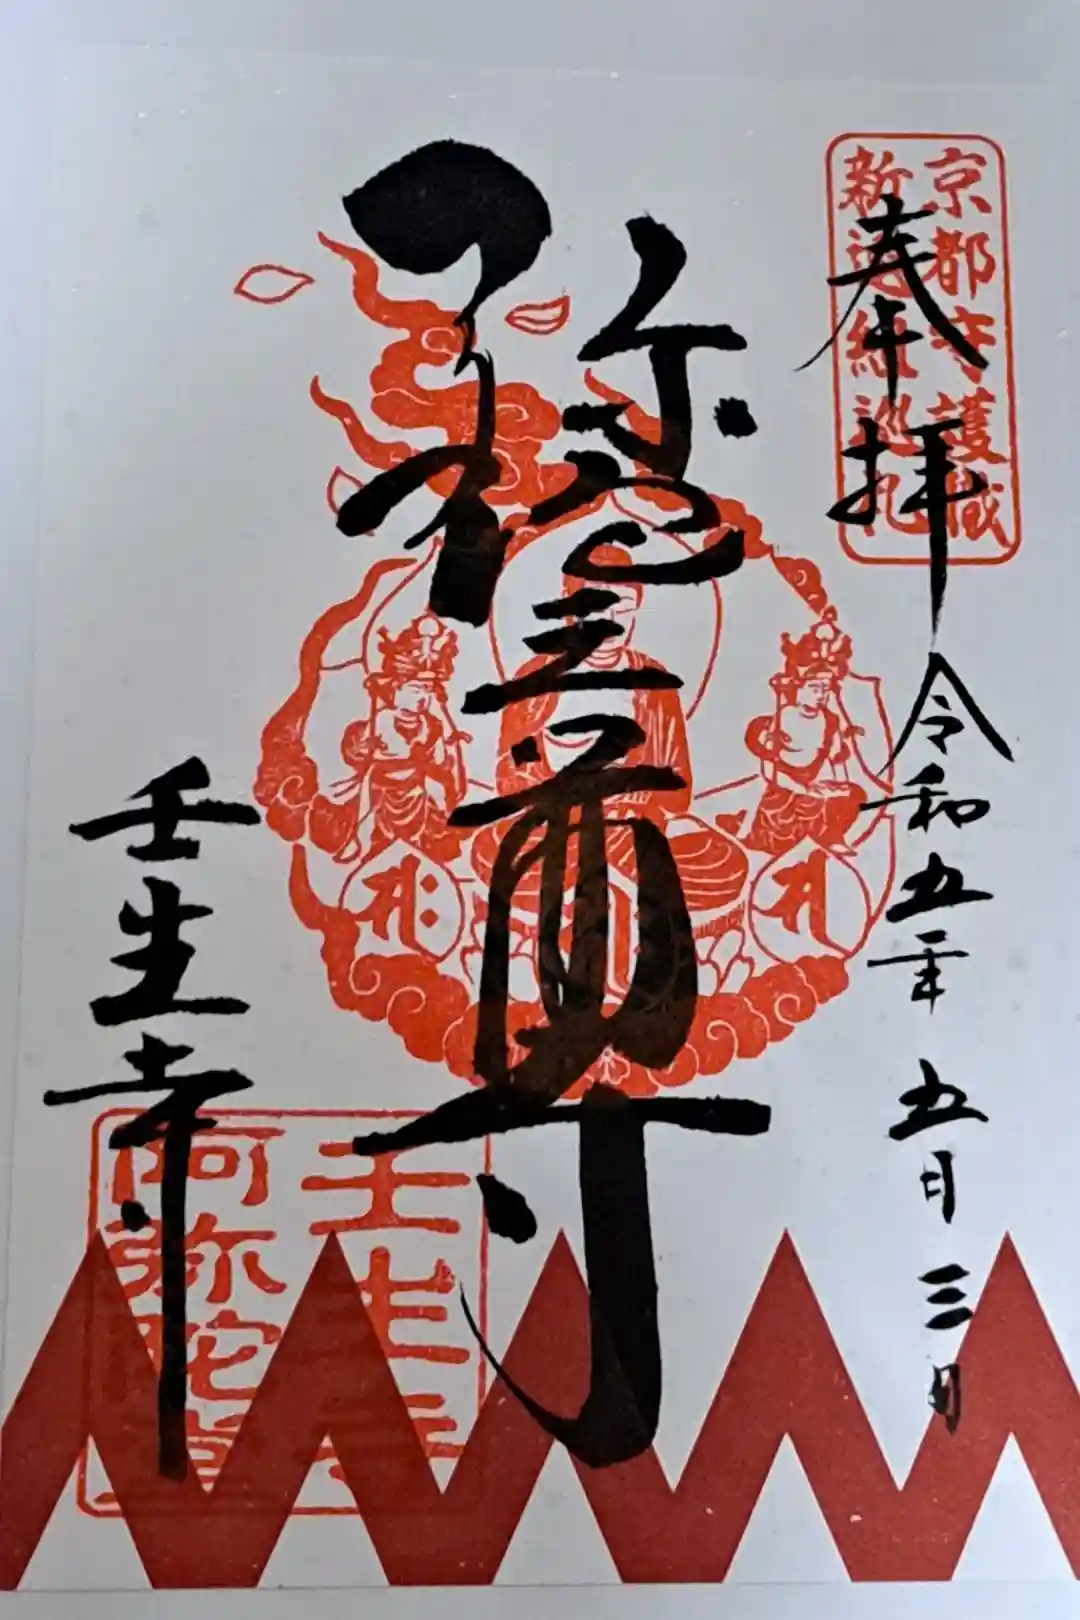 京都守護職
新選組巡礼
奉拝
令和五年 五月 三日
弥陀三尊
壬生寺
壬生寺
阿弥陀堂